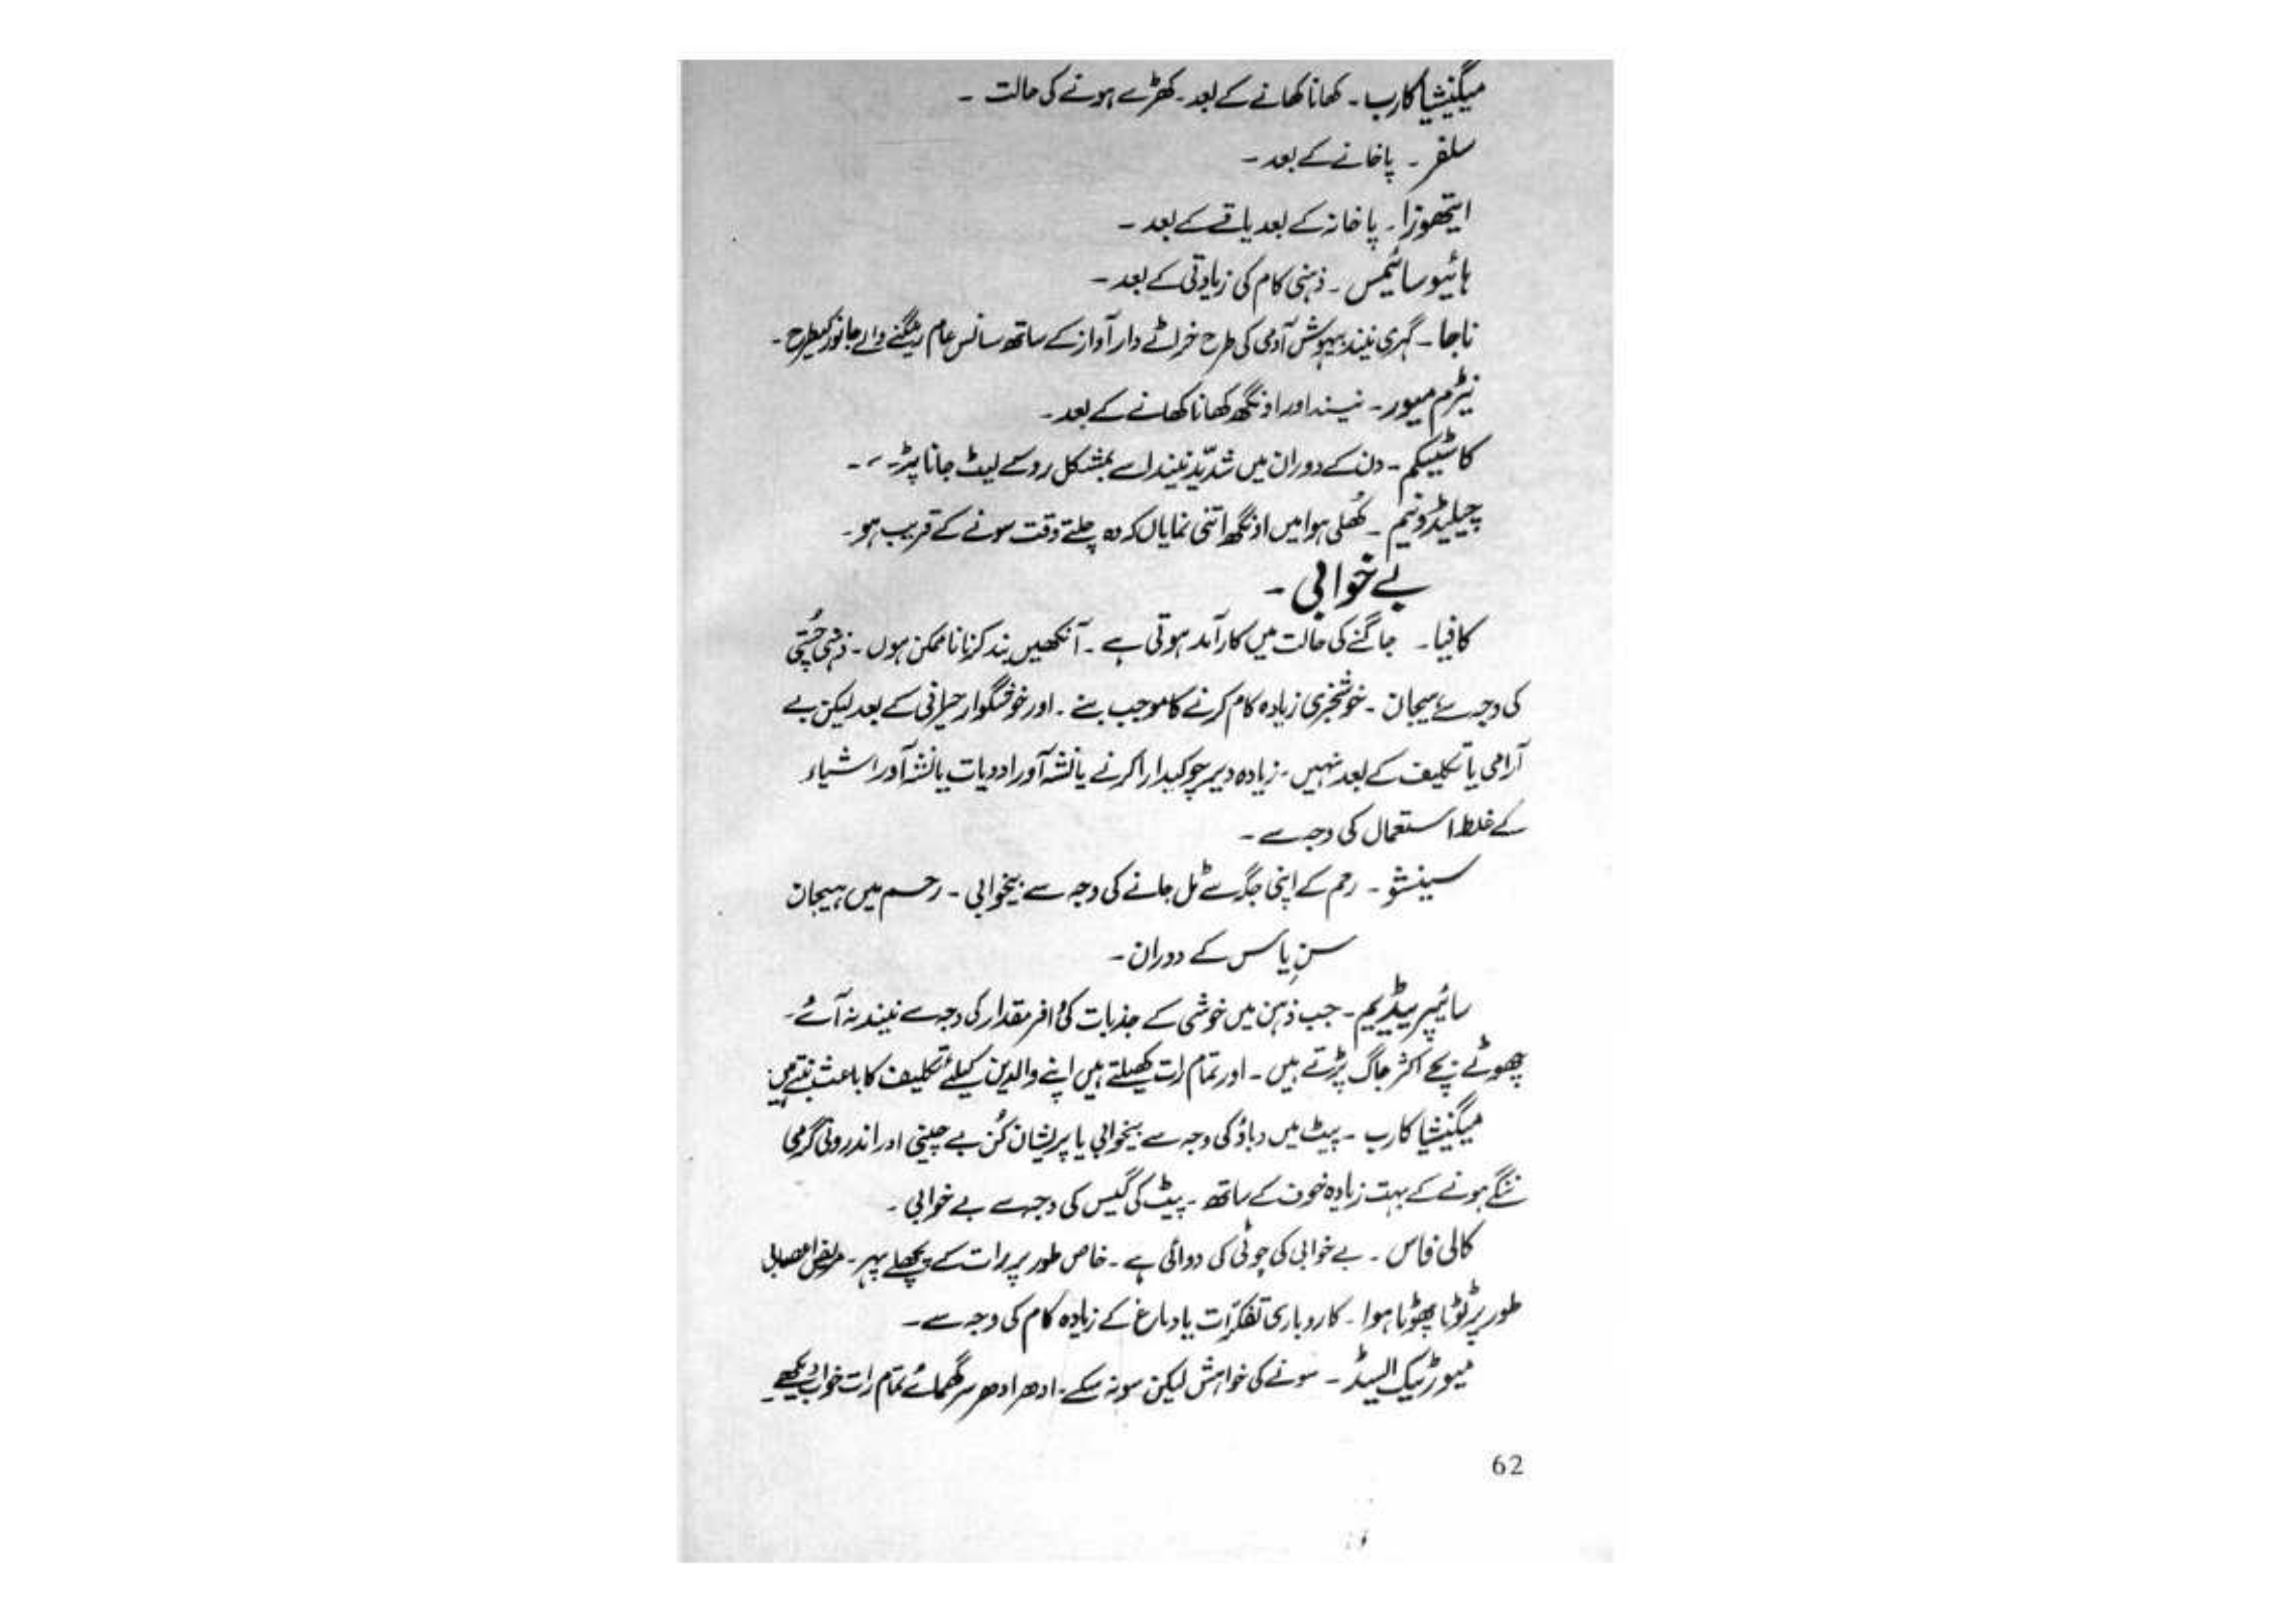 میگنیشیا کارب۔ کھانا کھانے کے بعد۔ کھڑے ہونے کی حالت ۔
سلفر ۔ پاخانے کے بعد ۔
ایتھوزا ۔ پاخانہ کے بعد یا قے کے بعد ۔
ہائیوسائیمس ۔ ذہنی کام کی زیادتی کے بعد ۔
ناجا ۔ گہری نیند بیہوش آدمی کی طرح خراٹے دار آواز کے ساتھ سانس عام رینگنے والے جانور کیطرح ۔
نیٹرم میور ۔ نیند اور اونگھ کھانا کھانے کے بعد ۔
کاسٹیکم ۔ دن کے دوران میں شدّید نیند اسے بمشکل روکے لیٹ جانا پڑ
چیلیڈونیم ۔ کُھلی ہوا میں اونگھ اتنی نمایاں کہ وہ چلتے وقت سونے کے قریب ہو ۔
بے خوابی ۔
کافیا ۔ جاگنے کی حالت میں کارآمد ہوتی ہے ۔ آنکھیں بند کرنا ناممکن ہوں ۔ ذہنی چُستی
کی وجہ سے ہیجان ۔ خوشخبری زیادہ کام کرنے کا موجب بنے ۔ اور خوشگوار حیرانی کے بعد لیکن بے
آرامی یا تکلیف کے بعد نہیں ۔ زیادہ دیر چوکیدارا کرنے یا نشہ آور ادویات یا نشہ آور اشیاء
کے غلط استعمال کی وجہ سے ۔
سینشو ۔ رحم کے اپنی جگہ سے ٹل جانے کی وجہ سے بیخوابی ۔ رحم میں ہیجان
سنِ یاس کے دوران ۔
سائیپریپیڈیم ۔ جب ذہن میں خوشی کے جذبات کی وافر مقدار کی وجہ سے نیند نہ آئے ۔
چھوٹے بچے اکثر جاگ پڑتے ہیں ۔ اور تمام رات کھیلتے ہیں اپنے والدین کیلئے تکلیف کا باعث بنتے ہیں
میگنیشیا کارب ۔ پیٹ میں دباؤ کی وجہ سے بیخوابی یا پریشان کُن بے چینی اور اندرونی گرمی
ننگے ہونے کے بہت زیادہ خوف کے ساتھ ۔ پیٹ کی گیس کی وجہ سے بے خوابی ۔
کالی فاس ۔ بے خوابی کی چوٹی کی دوائی ہے ۔ خاص طور پر رات کے پچھلے پہر ۔ مریض اعصابی
طور پر ٹوٹا پھوٹا ہوا ۔ کاروباری تفکرّات یا دماغ کے زیادہ کام کی وجہ سے ۔
میورٹیک ایسڈ ۔ سونے کی خواہش لیکن سو نہ سکے ۔ ادھر ادھر سر گھمائے تمام رات خواب دیکھے ۔
62